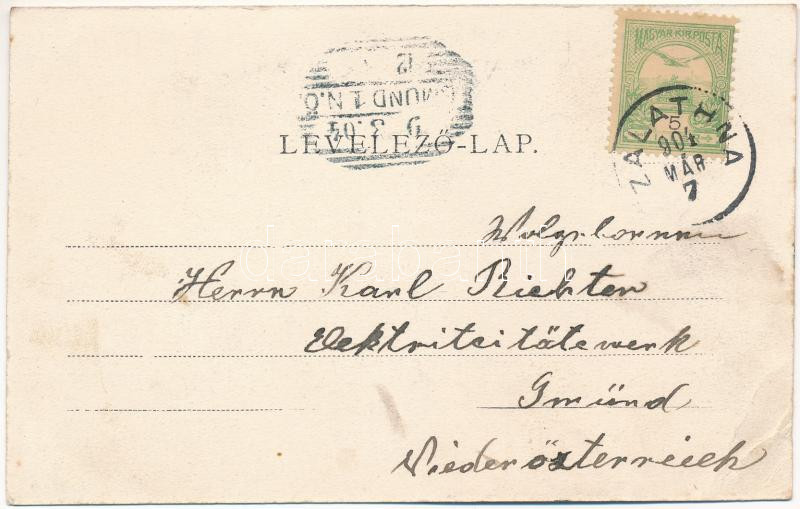 MAGYAR KIR. POSTA
ZALATHNA
904
MÁR
7
GMÜND 1 N.Ö.
9 3.04
12
LEVELEZŐ-LAP.
Wolgebornen
Herrn Karl Richter
Elektricitätswerk
Gmünd
Niederösterreich
darabanth